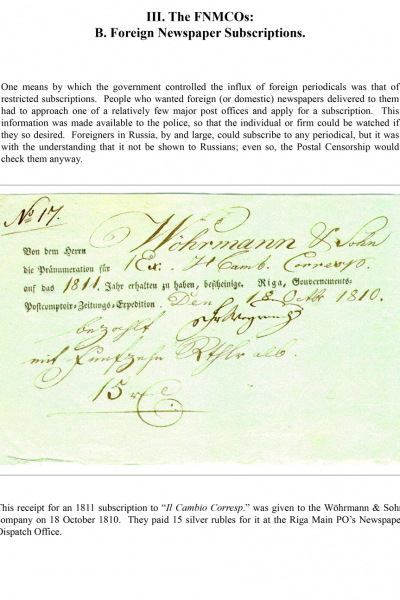 III. The FNMCOs:
B. Foreign Newspaper Subscriptions.
One means by which the government controlled the influx of foreign periodicals was that of
restricted subscriptions. People who wanted foreign (or domestic) newspapers delivered to them
had to approach one of a relatively few major post offices and apply for a subscription. This
information was made available to the police, so that the individual or firm could be watched if
they so desired. Foreigners in Russia, by and large, could subscribe to any periodical, but it was
with the understanding that it not be shown to Russians; even so, the Postal Censorship would
check them anyway.
No 17.
Von dem Herrn Wöhrmann & Sohn
die Pränumeration für 1 Ex. Il Camb. Corresp.
auf das 1811. Jahr erhalten zu haben, bescheinige. Riga, Gouvernements-
Postcomptoir-Zeitungs-Expedition. Den 18 Octbr 1810.
bezahlt
mit Funfzehn Rthlr alb.
15
This receipt for an 1811 subscription to “Il Cambio Corresp.” was given to the Wöhrmann & Sohn
company on 18 October 1810. They paid 15 silver rubles for it at the Riga Main PO’s Newspaper
Dispatch Office.